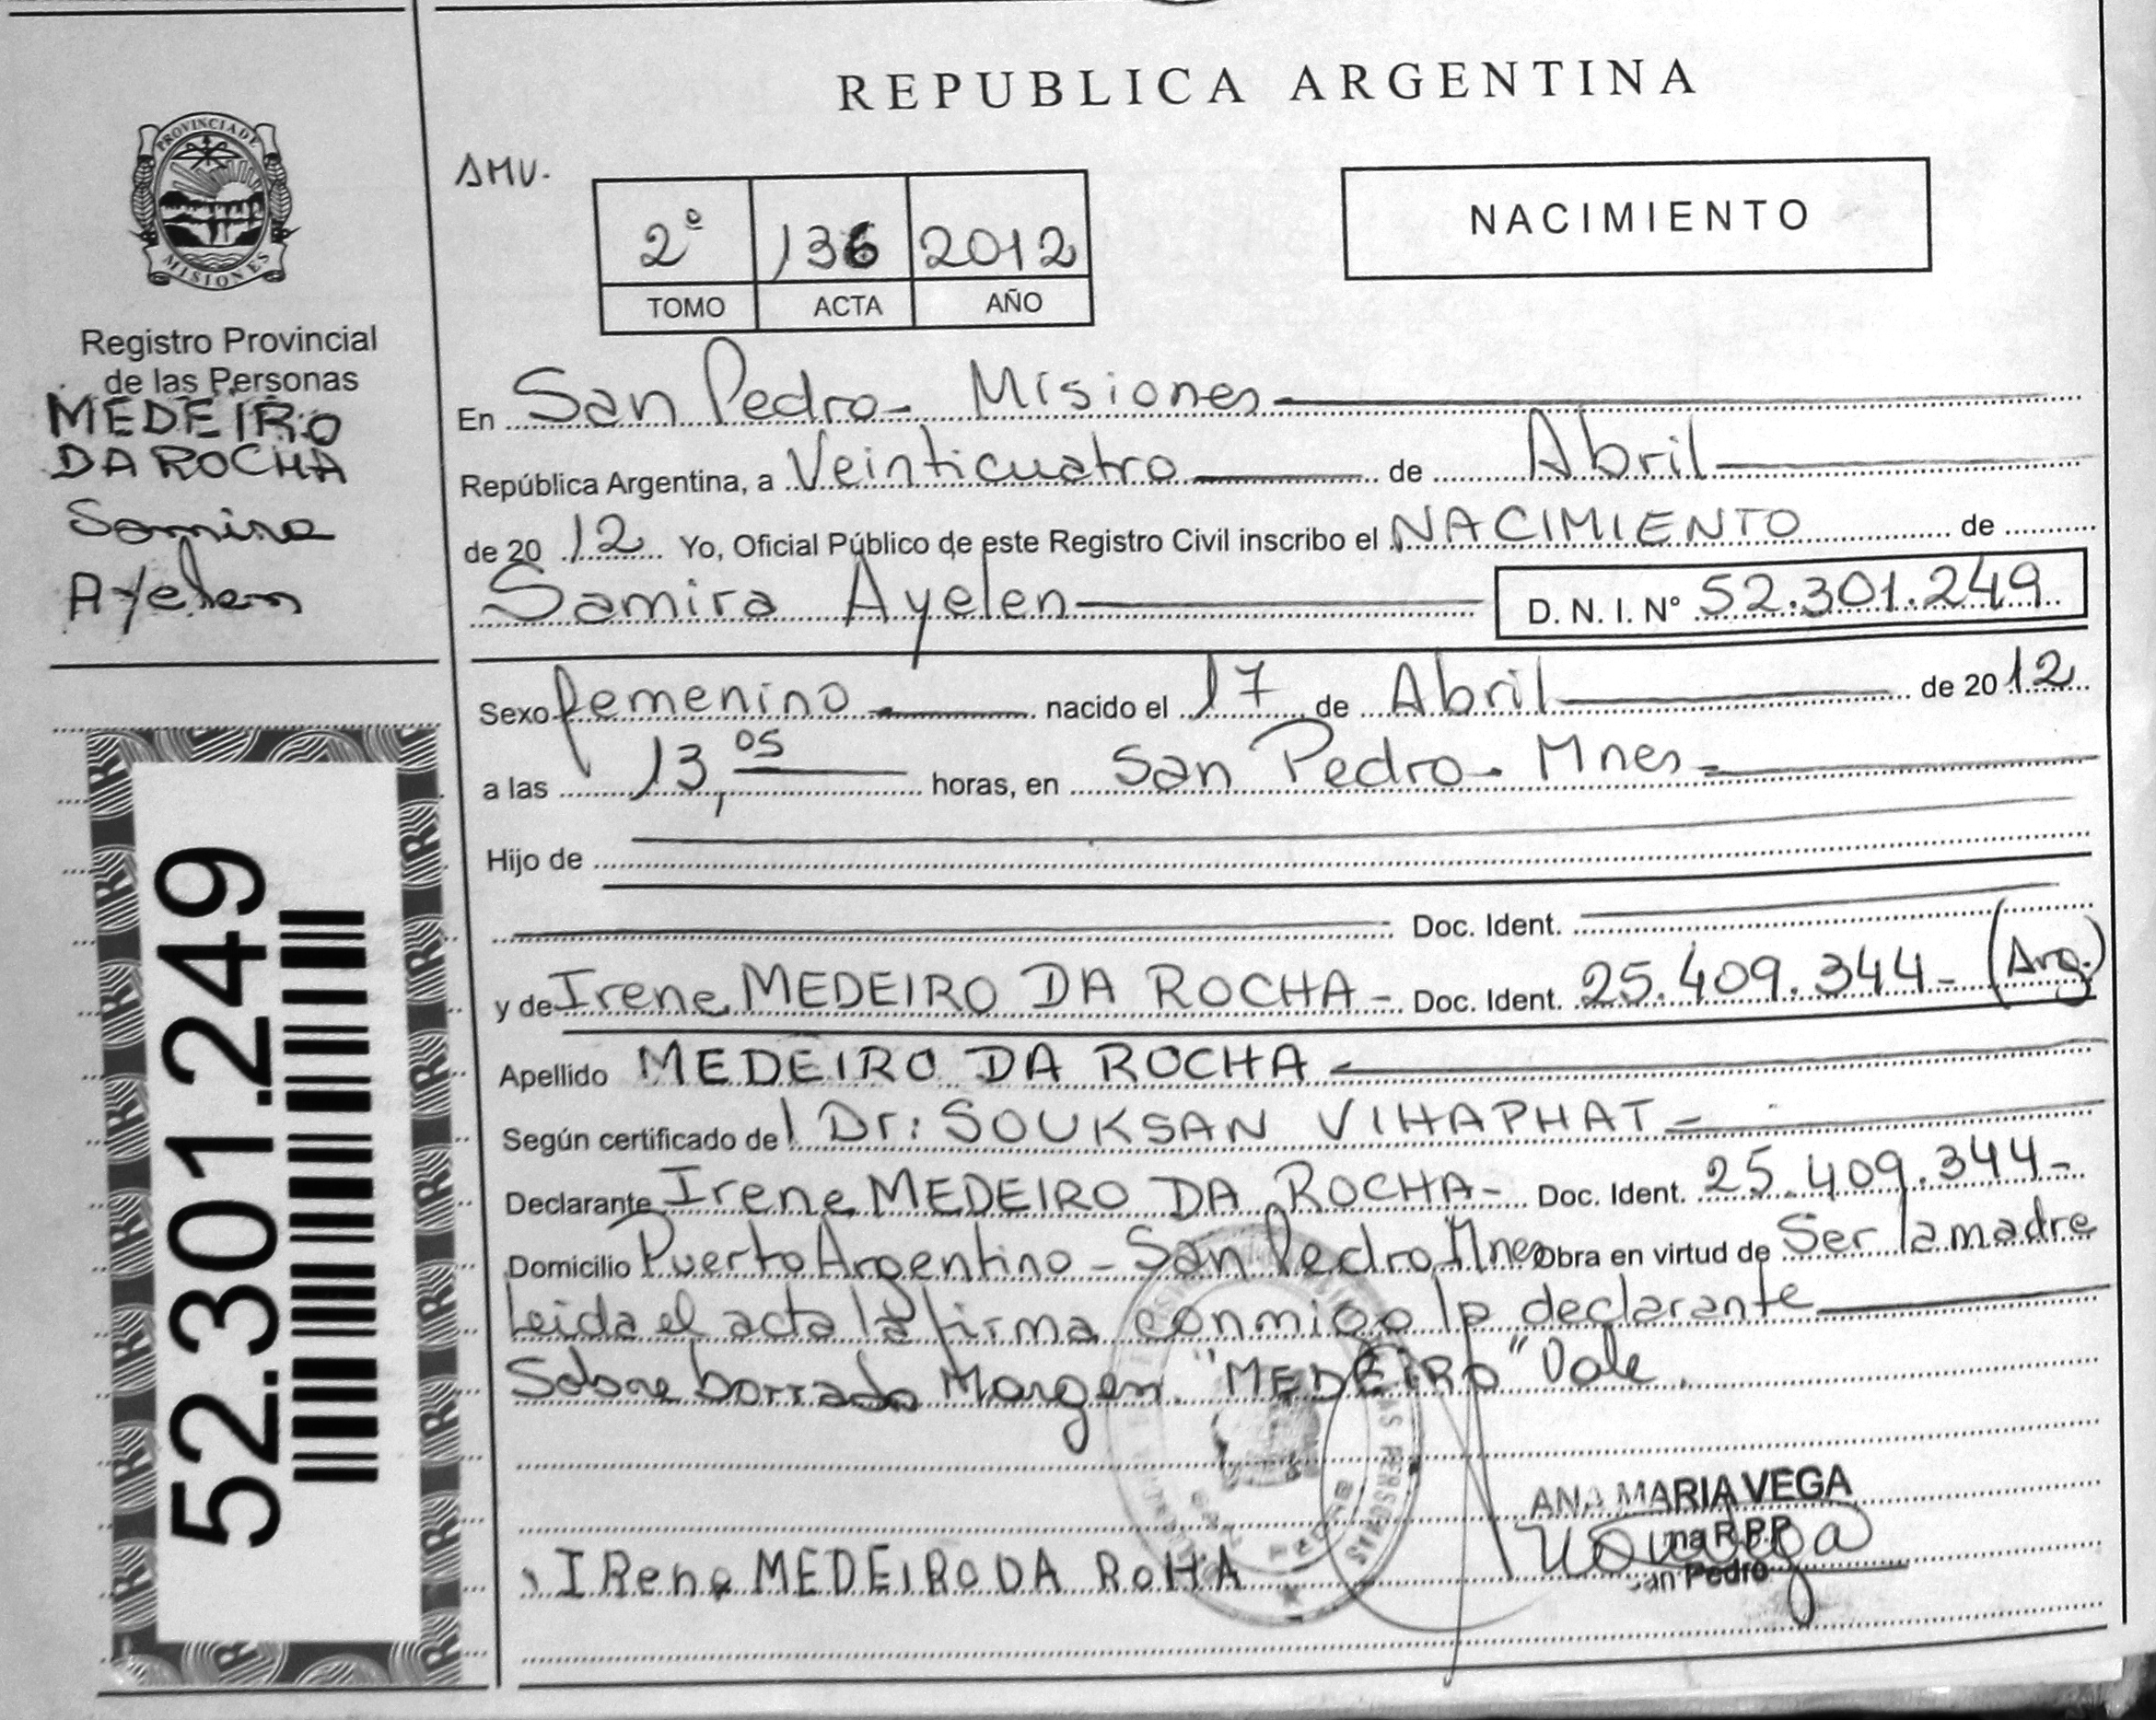 REPUBLICA ARGENTINA
PROVINCIA DE
MISIONES
Registro Provincial
de las Personas
MEDEIRO
DA ROCHA
Samira
Ayelen
52.301.249
AMV.
2º 136 2012
TOMO ACTA AÑO
NACIMIENTO
En San Pedro - Misiones
República Argentina, a Veinticuatro de Abril
de 2012 Yo, Oficial Público de este Registro Civil inscribo el NACIMIENTO de
Samira Ayelen D. N. I. Nº 52.301.249
Sexo femenino nacido el 17 de Abril de 2012
a las 13,05 horas, en San Pedro - Mnes -
Hijo de
Doc. Ident.
y de Irene MEDEIRO DA ROCHA - Doc. Ident. 25.409.344 - (Arg.)
Apellido MEDEIRO DA ROCHA -
Según certificado del Dr: SOUKSAN VIHAPHAT -
Declarante Irene MEDEIRO DA ROCHA - Doc. Ident. 25.409.344 -
Domicilio Puerto Argentino - San Pedro Mnes Obra en virtud de Ser la madre
Leida el acta la firma conmigo la declarante
Sobre borrado Margen. "MEDEIRO" Vale.
ANA MARIA VEGA
R.P.P.
San Pedro
IRene MEDEIRO DA ROHA